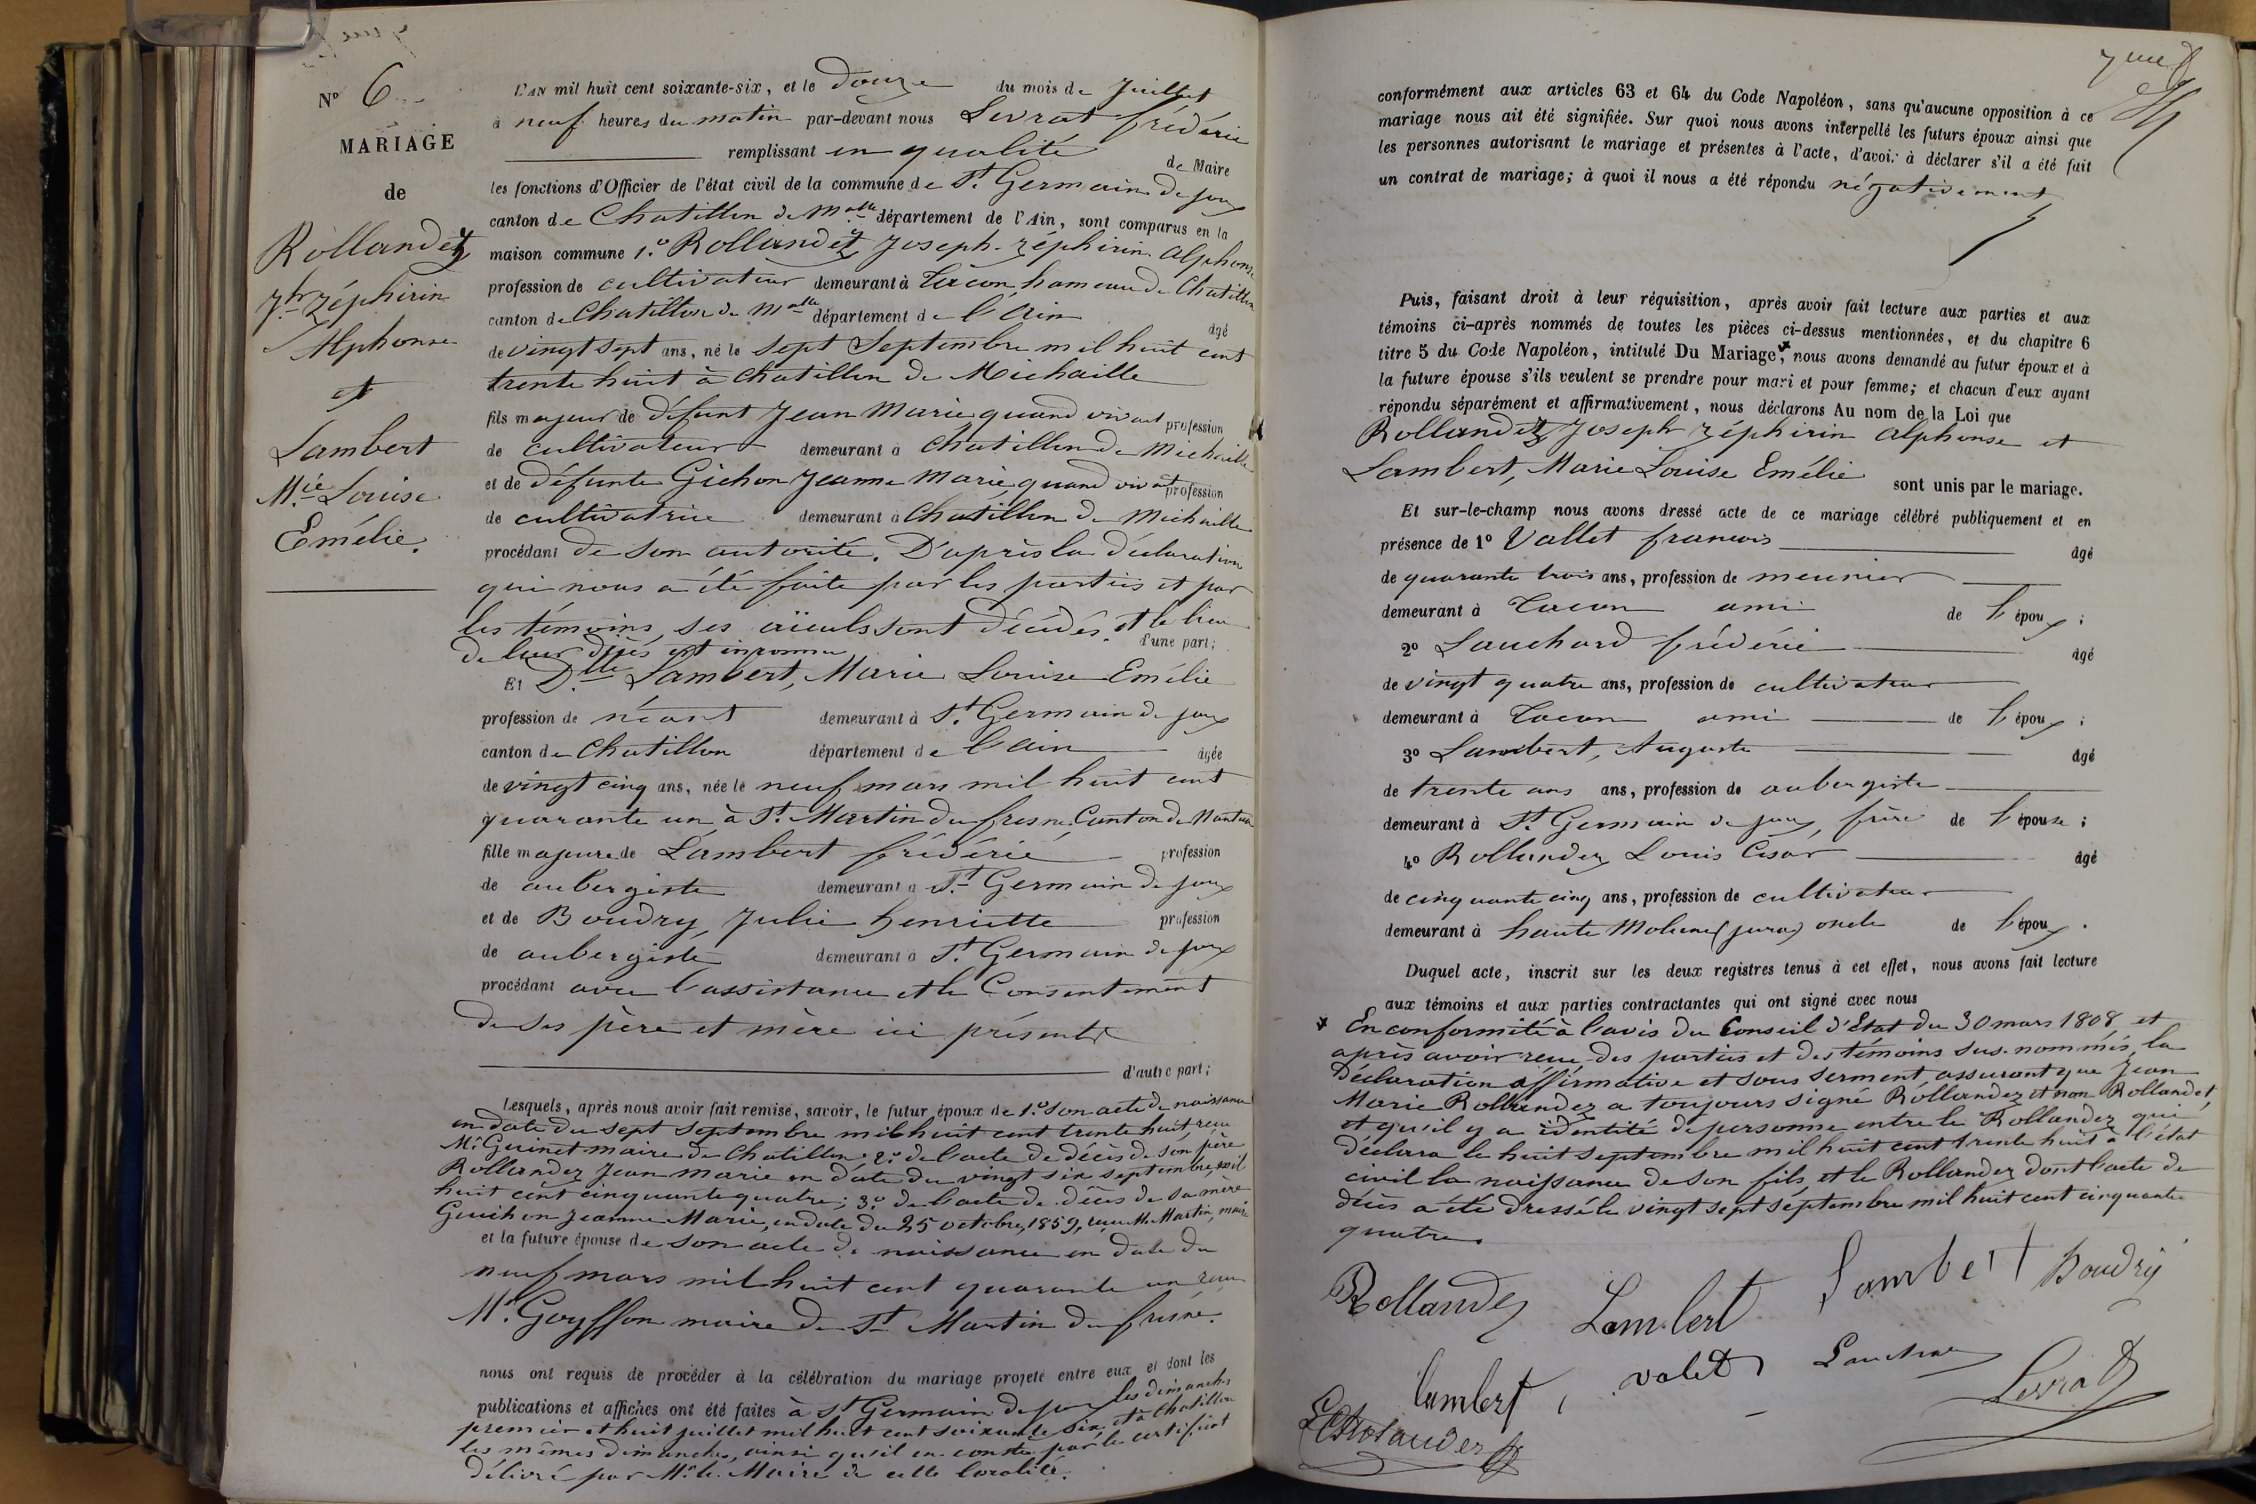 N° 6
MARIAGE
de
Rollandez
Jh Zéphirin
Alphonse
et
Lambert
Mie Louise
Emélie.
L'AN mil huit cent soixante-six, et le douze du mois de Juillet
à neuf heures du matin par-devant nous Levrat frédéric
remplissant en qualité de Maire
les fonctions d'Officier de l'état civil de la commune de St. Germain de joux
canton de Chatillon de Malle département de l'Ain, sont comparus en la
maison commune 1.° Rollandez Joseph-zéphirin Alphonse
profession de cultivateur demeurant à Tacon, hameau de Chatillon
canton de Chatillon de Malle département de l'Ain âgé
de vingt sept ans, né le sept Septembre mil huit cent
trente huit à Chatillon de Michaille
fils majeur de défunt Jean Marie quand vivant profession
de cultivateur demeurant à Chatillon de Michaille
et de défunte Gichon Jeanne Marie, quand vivait profession
de cultivatrice demeurant à Chatillon de Michaille
procédant de son autorité. D'après la déclaration
qui nous a été faite par les parties et par
les témoins, ses aïeuls sont décédés et le lieu
de leur décès est inconnu d'une part;
Et Dlle Lambert, Marie Louise Emélie
profession de néant demeurant à St. Germain de joux
canton de Chatillon département de l'Ain âgée
de vingt cinq ans, née le neuf mars mil huit cent
quarante un à St. Martin du fresne, Canton de Nantua
fille majeure de Lambert frédéric profession
de aubergiste demeurant à St Germain de joux
et de Boudry, Julie henriette profession
de aubergiste demeurant à St. Germain de joux
procédant avec l'assistance et le Consentement
de ses père et mère ici présents
d'autre part;
Lesquels, après nous avoir fait remise, savoir, le futur époux de 1.° son acte de naissance
en date du sept Septembre mil huit cent trente huit reçu
Mr Guinet maire de Chatillon; 2.° de l'acte de décès de son père
Rollandez Jean Marie en date du vingt six septembre mil
huit cent cinquante quatre; 3.° de l'acte de décès de sa mère
Guichon Jeanne Marie, en date du 25 octobre, 1859, reçu Mr Martin, maire
et la future épouse de son acte de naissance en date du
neuf mars mil huit cent quarante un reçu
Mr. Goyffon maire de St Martin du fresne.
nous ont requis de procéder à la célébration du mariage projeté entre eux et dont les
publications et affiches ont été faites à St Germain de joux les dimanches
premier et huit juillet mil huit cent soixante six, et à Chatillon
les mêmes dimanches, ainsi qu'il en conste par le certificat
délivré par Mr le Maire de cette localité.
conformément aux articles 63 et 64 du Code Napoléon, sans qu'aucune opposition à ce
mariage nous ait été signifiée. Sur quoi nous avons interpellé les futurs époux ainsi que
les personnes autorisant le mariage et présentes à l'acte, d'avoir à déclarer s'il a été fait
un contrat de mariage; à quoi il nous a été répondu négativement
Puis, faisant droit à leur réquisition, après avoir fait lecture aux parties et aux
témoins ci-après nommés de toutes les pièces ci-dessus mentionnées, et du chapitre 6
titre 5 du Code Napoléon, intitulé Du Mariage, nous avons demandé au futur époux et à
la future épouse s'ils veulent se prendre pour mari et pour femme; et chacun d'eux ayant
répondu séparément et affirmativement, nous déclarons Au nom de la Loi que
Rollandez Joseph zéphirin alphonse et
Lambert, Marie Louise Emélie sont unis par le mariage.
Et sur-le-champ nous avons dressé acte de ce mariage célébré publiquement et en
présence de 1° Vallet francois âgé
de quarante trois ans, profession de meunier
demeurant à Tacon ami de l'époux;
2° Lauchard frédéric âgé
de vingt quatre ans, profession de cultivateur
demeurant à Tacon ami de l'époux;
3° Lambert, Auguste âgé
de trente ans ans, profession de aubergiste
demeurant à St. Germain de joux, frère de l'épouse;
4° Rollandez Louis César âgé
de cinquante cinq ans, profession de cultivateur
demeurant à haute Molune (jura) oncle de l'époux.
Duquel acte, inscrit sur les deux registres tenus à cet effet, nous avons fait lecture
aux témoins et aux parties contractantes qui ont signé avec nous
x En conformité à l'avis du Conseil d'État du 30 mars 1808, et
après avoir reçu des parties et des témoins sus-nommés, la
Déclaration affirmative et sous serment assurant que Jean
Marie Rollandez a toujours signé Rollandez et non Rollandet,
et qu'il y a identité de personne entre le Rollandez qui
déclara le huit septembre mil huit cent trente huit à l'état
civil la naissance de son fils, et le Rollandez dont l'acte de
décès a été dressé le vingt sept septembre mil huit cent cinquante
quatre.
Rollandez Lambert Lambert Boudry
lambert valet Lauchard Levrat